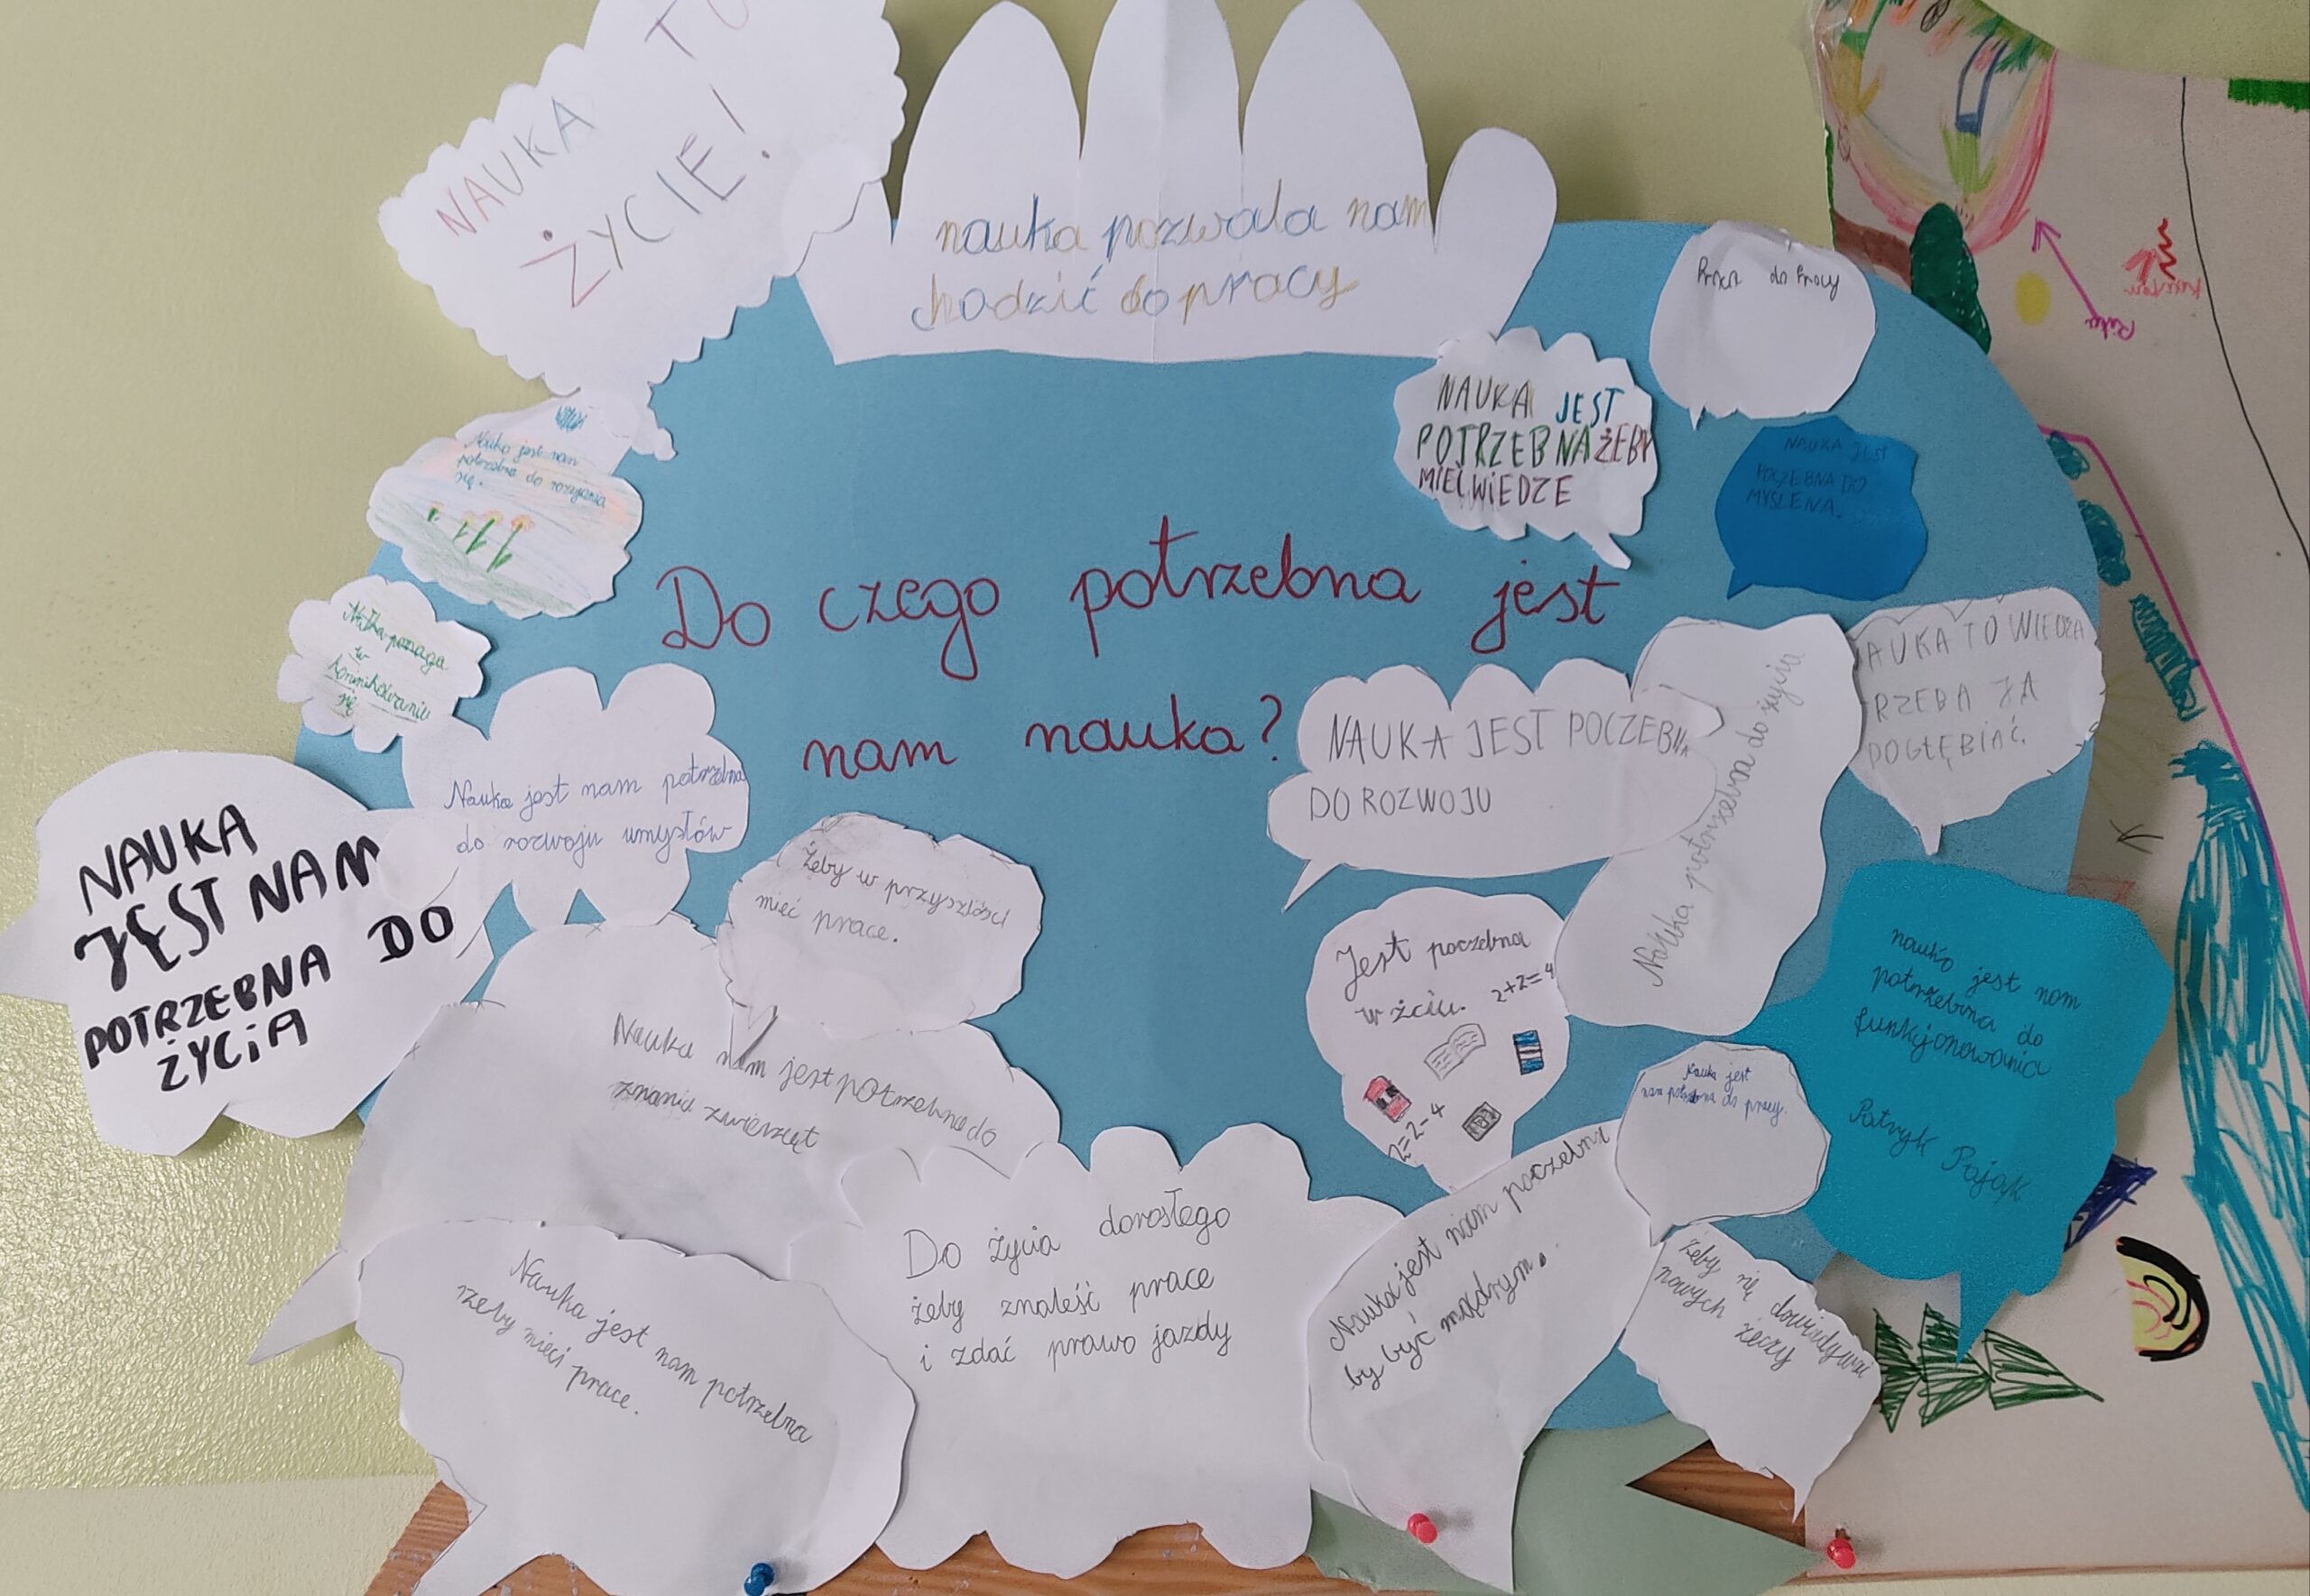 NAUKA TO
ŻYCIE!
nauka pozwala nam
chodzić do pracy
do Pracy
NAUKA JEST
POTRZEBNA ŻEBY
MIEĆ WIEDZE
NAUKA JEST
POCZEBNA DO
MYŚLENA.
Nauka jest nam
potrzebna do rozwijania
się.
Do czego potrzebna jest
nam nauka?
Nałka pomaga
w
komunikowaniu
się
Nauka jest nam potrzebna
do rozwoju umysłów
NAUKA JEST POCZEBNA
DO ROZWOJU
Nałuka potrzebna do życia
AUKA TO WIEDZA
RZEBA JĄ
POGŁĘBIAĆ.
NAUKA
JEST NAM
POTRZEBNA DO
ŻYCIA
Żeby w przyszłości
mieć prace.
Jest poczebna
w żciu. 2+2=4
2=2-4
nauka jest nam
potrzebna do
funkcjonowania
Patryk Pająk
Nauka nam jest potrzebna do
znania zwierząt
Nauka jest
nam potrzebna do pracy.
Nauka jest nam potrzebna
rzeby mieci prace.
Do życia dorosłego
żeby znaleść prace
i zdać prawo jazdy
Nauka jest nam poczebna
by być mądrym.
Żeby się dowiedywać
nowych żeczy